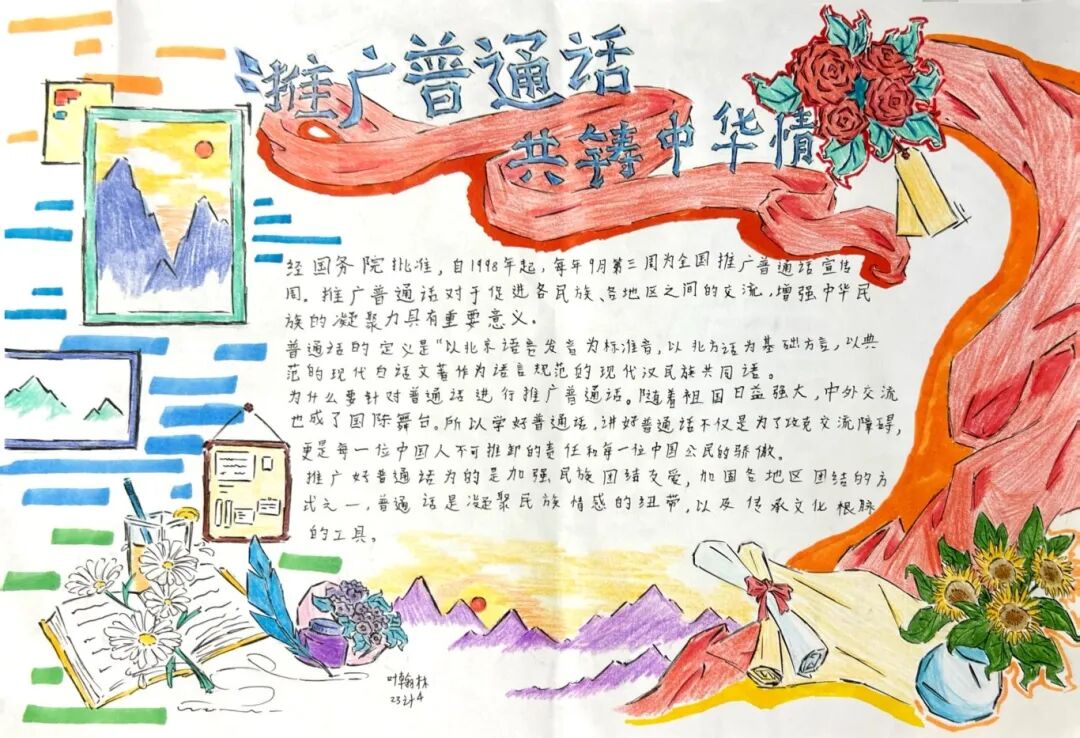 推广普通话
共铸中华情
经国务院批准，自1998年起，每年9月第三周为全国推广普通话宣传
周。推广普通话对于促进各民族、各地区之间的交流，增强中华民
族的凝聚力具有重要意义。
普通话的定义是“以北京语音发音为标准音，以北方话为基础方言，以典
范的现代白话文著作为语言规范的现代汉民族共同语。
为什么要针对普通话进行推广普通话。随着祖国日益强大，中外交流
也成了国际舞台。所以学好普通话，讲好普通话不仅是为了攻克交流障碍，
更是每一位中国人不可推卸的责任和每一位中国公民的骄傲。
推广好普通话为的是加强民族团结友爱，加固各地区团结的方
式之一，普通话是凝聚民族情感的纽带，以及传承文化根脉
的工具。
叶翰林
23计4